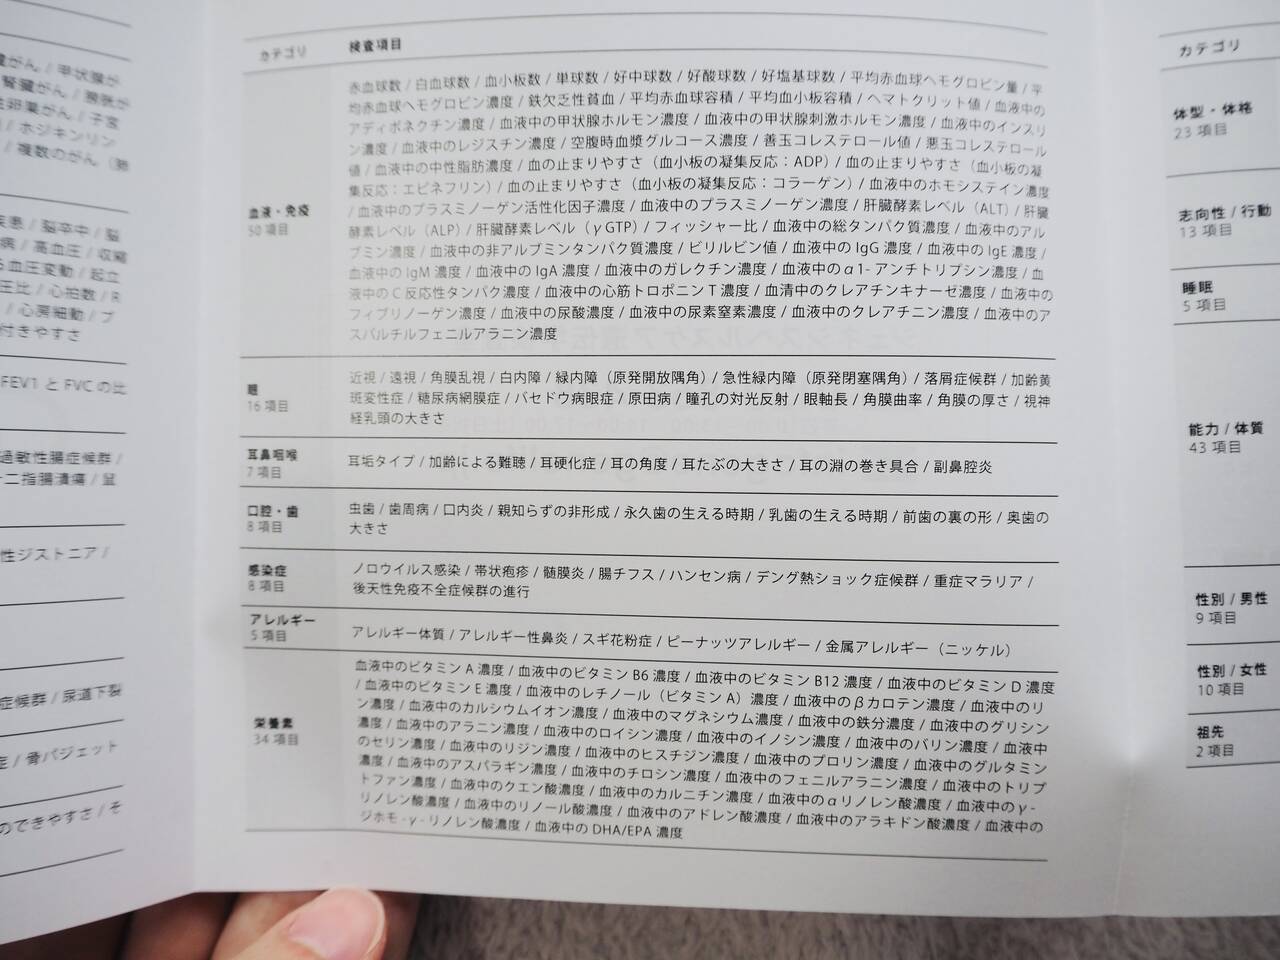 腎臓がん / 膀胱が
卵巣がん / 子宮
/ ホジキンリン
/ 複数のがん
疾患 / 脳卒中 / 脳
病 / 高血圧 / 収縮
血圧変動 / 起立
圧比 / 心拍数 / R
/ 心房細動 / ブ
付きやすさ
FEV1 と FVC の比
過敏性腸症候群 /
十二指腸潰瘍 / 鼠
性ジストニア /
症候群 / 尿道下裂
症 / 骨パジェット
のできやすさ / そ
カテゴリ 検査項目
血液・免疫
50 項目
赤血球数 / 白血球数 / 血小板数 / 単球数 / 好中球数 / 好酸球数 / 好塩基球数 / 平均赤血球ヘモグロビン量 / 平
均赤血球ヘモグロビン濃度 / 鉄欠乏性貧血 / 平均赤血球容積 / 平均血小板容積 / ヘマトクリット値 / 血液中の
アディポネクチン濃度 / 血液中の甲状腺ホルモン濃度 / 血液中の甲状腺刺激ホルモン濃度 / 血液中のインスリ
ン濃度 / 血液中のレジスチン濃度 / 空腹時血漿グルコース濃度 / 善玉コレステロール値 / 悪玉コレステロール
値 / 血液中の中性脂肪濃度 / 血の止まりやすさ（血小板の凝集反応：ADP）/ 血の止まりやすさ（血小板の凝
集反応：エピネフリン）/ 血の止まりやすさ（血小板の凝集反応：コラーゲン）/ 血液中のホモシステイン濃度
/ 血液中のプラスミノーゲン活性化因子濃度 / 血液中のプラスミノーゲン濃度 / 肝臓酵素レベル（ALT）/ 肝臓
酵素レベル（ALP）/ 肝臓酵素レベル（γGTP）/ フィッシャー比 / 血液中の総タンパク質濃度 / 血液中のアル
ブミン濃度 / 血液中の非アルブミンタンパク質濃度 / ビリルビン値 / 血液中の IgG 濃度 / 血液中の IgE 濃度 /
血液中の IgM 濃度 / 血液中の IgA 濃度 / 血液中のガレクチン濃度 / 血液中のα1- アンチトリプシン濃度 / 血
液中の C 反応性タンパク濃度 / 血液中の心筋トロポニン T 濃度 / 血清中のクレアチンキナーゼ濃度 / 血液中の
フィブリノーゲン濃度 / 血液中の尿酸濃度 / 血液中の尿素窒素濃度 / 血液中のクレアチニン濃度 / 血液中のア
スパルチルフェニルアラニン濃度
眼
16 項目
近視 / 遠視 / 角膜乱視 / 白内障 / 緑内障（原発開放隅角）/ 急性緑内障（原発閉塞隅角）/ 落屑症候群 / 加齢黄
斑変性症 / 糖尿病網膜症 / バセドウ病眼症 / 原田病 / 瞳孔の対光反射 / 眼軸長 / 角膜曲率 / 角膜の厚さ / 視神
経乳頭の大きさ
耳鼻咽喉
7 項目
耳垢タイプ / 加齢による難聴 / 耳硬化症 / 耳の角度 / 耳たぶの大きさ / 耳の淵の巻き具合 / 副鼻腔炎
口腔・歯
8 項目
虫歯 / 歯周病 / 口内炎 / 親知らずの非形成 / 永久歯の生える時期 / 乳歯の生える時期 / 前歯の裏の形 / 奥歯の
大きさ
感染症
8 項目
ノロウイルス感染 / 帯状疱疹 / 髄膜炎 / 腸チフス / ハンセン病 / デング熱ショック症候群 / 重症マラリア /
後天性免疫不全症候群の進行
アレルギー
5 項目
アレルギー体質 / アレルギー性鼻炎 / スギ花粉症 / ピーナッツアレルギー / 金属アレルギー（ニッケル）
栄養素
34 項目
血液中のビタミン A 濃度 / 血液中のビタミン B6 濃度 / 血液中のビタミン B12 濃度 / 血液中のビタミン D 濃度
/ 血液中のビタミン E 濃度 / 血液中のレチノール（ビタミン A）濃度 / 血液中のβカロテン濃度 / 血液中のリ
ン濃度 / 血液中のカルシウムイオン濃度 / 血液中のマグネシウム濃度 / 血液中の鉄分濃度 / 血液中のグリシン
濃度 / 血液中のアラニン濃度 / 血液中のロイシン濃度 / 血液中のイノシン濃度 / 血液中のバリン濃度 / 血液中
のセリン濃度 / 血液中のリジン濃度 / 血液中のヒスチジン濃度 / 血液中のプロリン濃度 / 血液中のグルタミン
濃度 / 血液中のアスパラギン濃度 / 血液中のチロシン濃度 / 血液中のフェニルアラニン濃度 / 血液中のトリプ
トファン濃度 / 血液中のクエン酸濃度 / 血液中のカルニチン濃度 / 血液中のαリノレン酸濃度 / 血液中のγ-
リノレン酸濃度 / 血液中のリノール酸濃度 / 血液中のアドレン酸濃度 / 血液中のアラキドン酸濃度 / 血液中の
ジホモ -γ- リノレン酸濃度 / 血液中の DHA/EPA 濃度
カテゴリ
体型・体格
23 項目
志向性 / 行動
13 項目
睡眠
5 項目
能力 / 体質
43 項目
性別 / 男性
9 項目
性別 / 女性
10 項目
祖先
2 項目